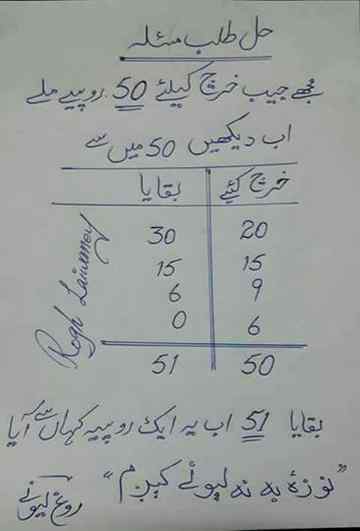 حل طلب مسئلہ
مجھے جیب خرچ کیلئے 50 روپیے ملے
اب دیکھیں 50 میں سے
خرچ کئیے بقایا
20 30
15 15
9 6
6 0
50 51
بقایا 51 اب یہ ایک روپیہ کہاں سے آیا
"نو زۂ بہ نہ لیونے کیږم"
روغ لیونے